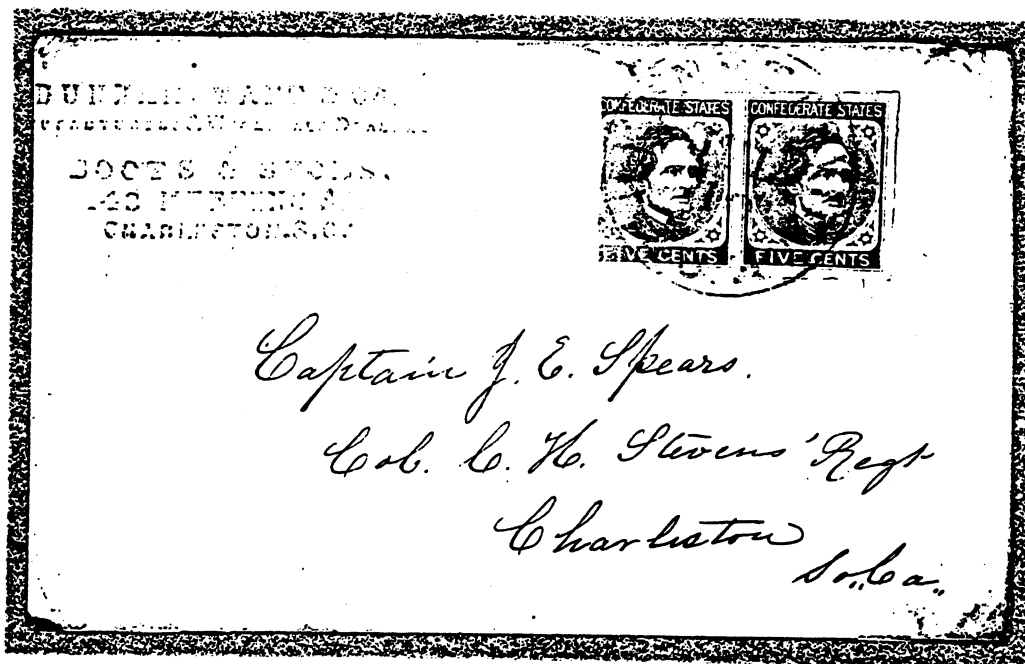 & CO.
BOOTS & SHOES.
CHARLESTON, S.C.
CONFEDERATE STATES
FIVE CENTS
CONFEDERATE STATES
FIVE CENTS
Captain J. E. Spears.
Col. C. H. Stevens' Regt
Charleston
So,, Ca,,